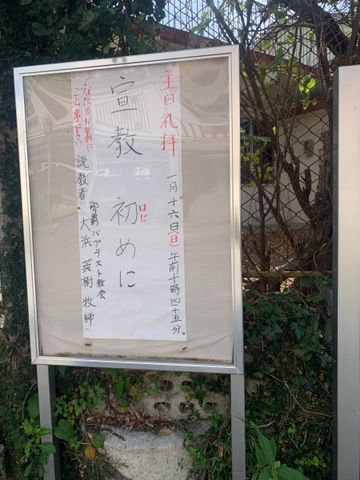 主日礼拝
一月十六日(日)午前十時四十五分。
宣教 初めに
はじ
どなたでもお気軽に
ご来会下さい
説教者。
那覇バプテスト教会
大浜 英樹 牧師